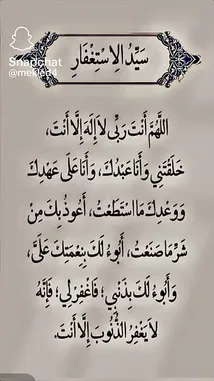 Snapchat
@mekled4
سَيِّدُ الِاسْتِغْفَارِ
اللَّهُمَّ أَنْتَ رَبِّي لَا إِلَهَ إِلَّا أَنْتَ،
خَلَقْتَنِي وَأَنَا عَبْدُكَ، وَأَنَا عَلَى عَهْدِكَ
وَوَعْدِكَ مَا اسْتَطَعْتُ، أَعُوذُ بِكَ مِنْ
شَرِّ مَا صَنَعْتُ، أَبُوءُ لَكَ بِنِعْمَتِكَ عَلَيَّ،
وَأَبُوءُ لَكَ بِذَنْبِي؛ فَاغْفِرْ لِي؛ فَإِنَّهُ
لَا يَغْفِرُ الذُّنُوبَ إِلَّا أَنْتَ.